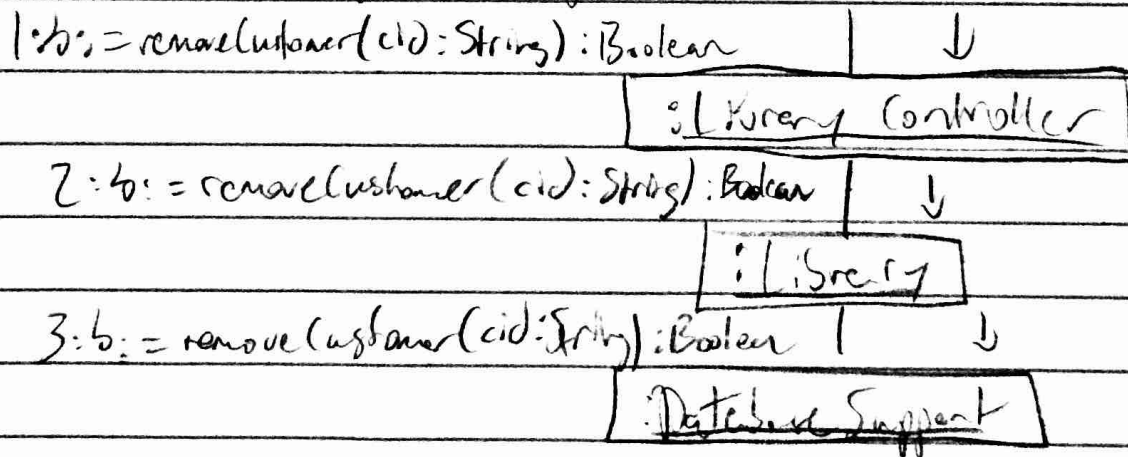 1:b:=removeCustomer(cid:String):Boolean
:Library Controller
2:b:=removeCustomer(cid:String):Boolean
:Library
3:b:=removeCustomer(cid:String):Boolean
:Database Support